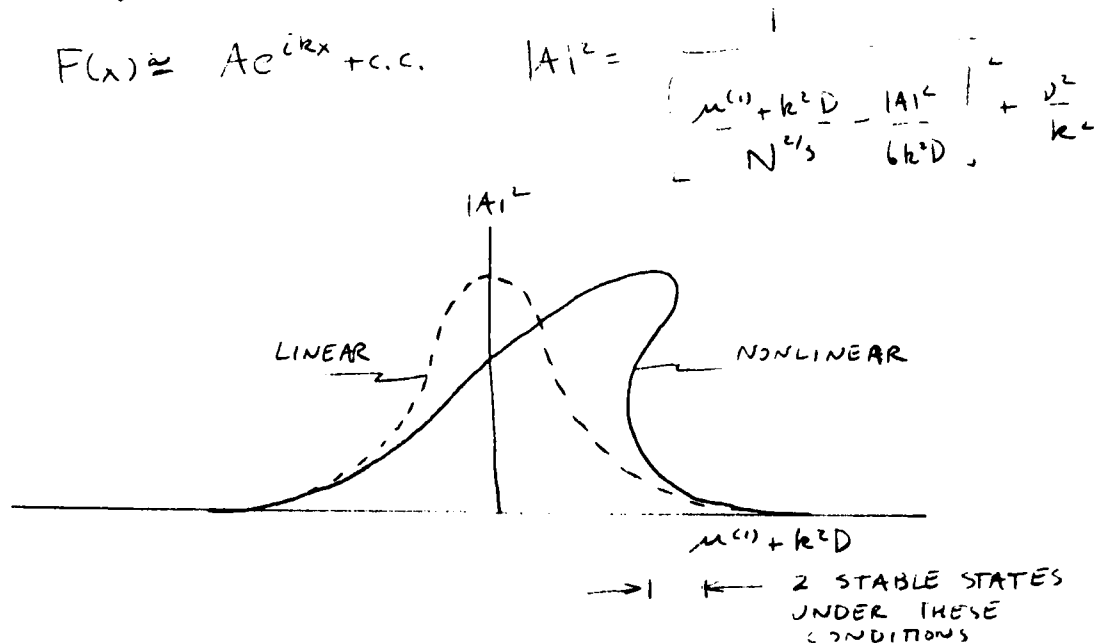 F(x) ≅ A e^{ikx} + c.c.    |A|² = 1 / ( [ (μ^{(1)} + k²D) / N^{2/3} - |A|² / (6k²D) ]² + ν²/k² )
|A|²
LINEAR
NONLINEAR
μ^{(1)} + k²D
2 STABLE STATES
UNDER THESE
CONDITIONS